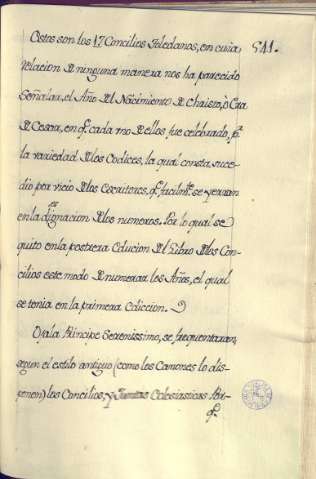 541.
Estos son los 17 Concilios Toledanos, en cuia
relacion de ninguna manera nos ha parecido
Señalar, el Año del Nacimiento de Christo, ò Era
de Cesar, en q.e cada uno de ellos fue celebrado, p.r
la variedad de los Codices, la qual consta suce-
dio por vicio de los Escritores, q.e facilm.te se yerran
en la designacion de los numeros. Por lo qual se
quito en la postrera Edicion del Libro de los Con-
cilios este modo de numerar los Años, el qual
se tenia en la primera Ediccion.
Ojala Principe Serenissimo, se frequentaran,
segun el estilo antiguo (como los Canones lo dis-
ponen) los Concilios, y Juntas Eclesiasticas
q.e